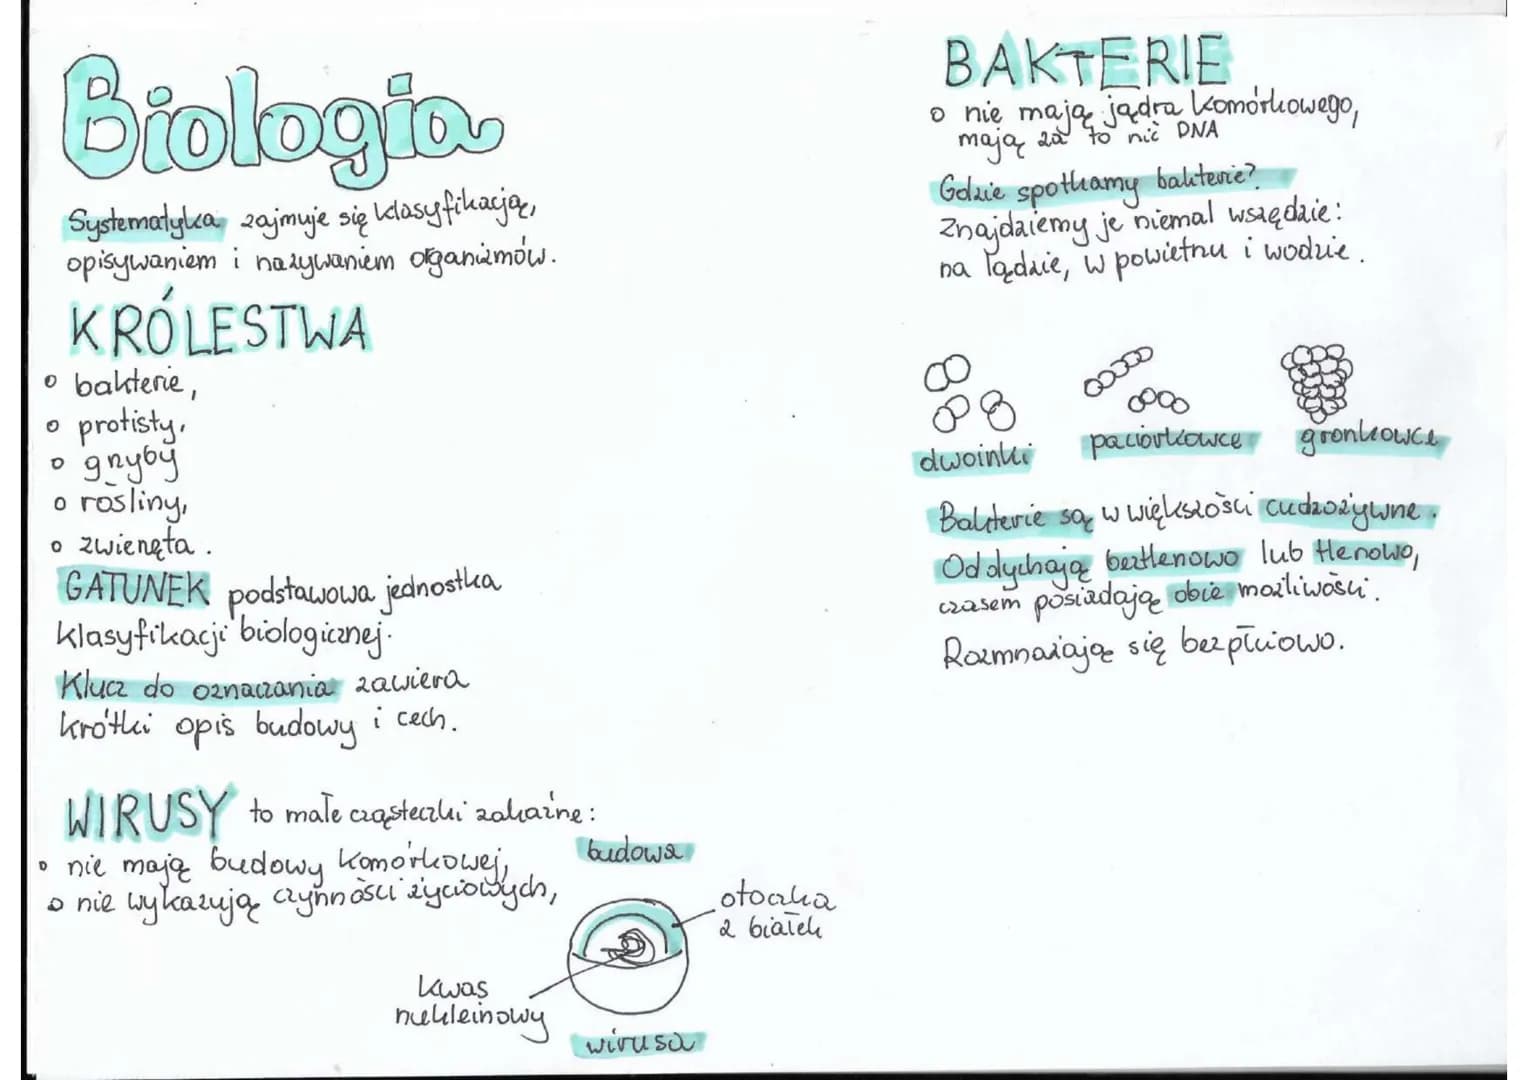 Biologia
Systematyka zajmuje się klasyfikacją,
opisywaniem i nazywaniem organizmów.
KRÓLESTWA
o bakterie,
o protisty,
o grzyby
o rośliny,
o zwierzęta.
GATUNEK podstawowa jednostka
klasyfikacji biologicznej.
Klucz do oznaczania zawiera
krótki opis budowy i cech.
WIRUSY to małe cząsteczki zakaźne:
o nie mają budowy komórkowej,
o nie wykazują czynności życiowych,
budowa
otoczka
z białek
kwas
nukleinowy
wirusa
BAKTERIE
o nie mają jądra komórkowego,
mają za to nić DNA
Gdzie spotkamy bakterie?
Znajdziemy je niemal wszędzie:
na lądzie, w powietrzu i wodzie.
dwoinki
paciorkowce
gronkowce
Bakterie są w większości cudzożywne.
Oddychają beztlenowo lub tlenowo,
czasem posiadają obie możliwości.
Rozmnażają się bezpłciowo.